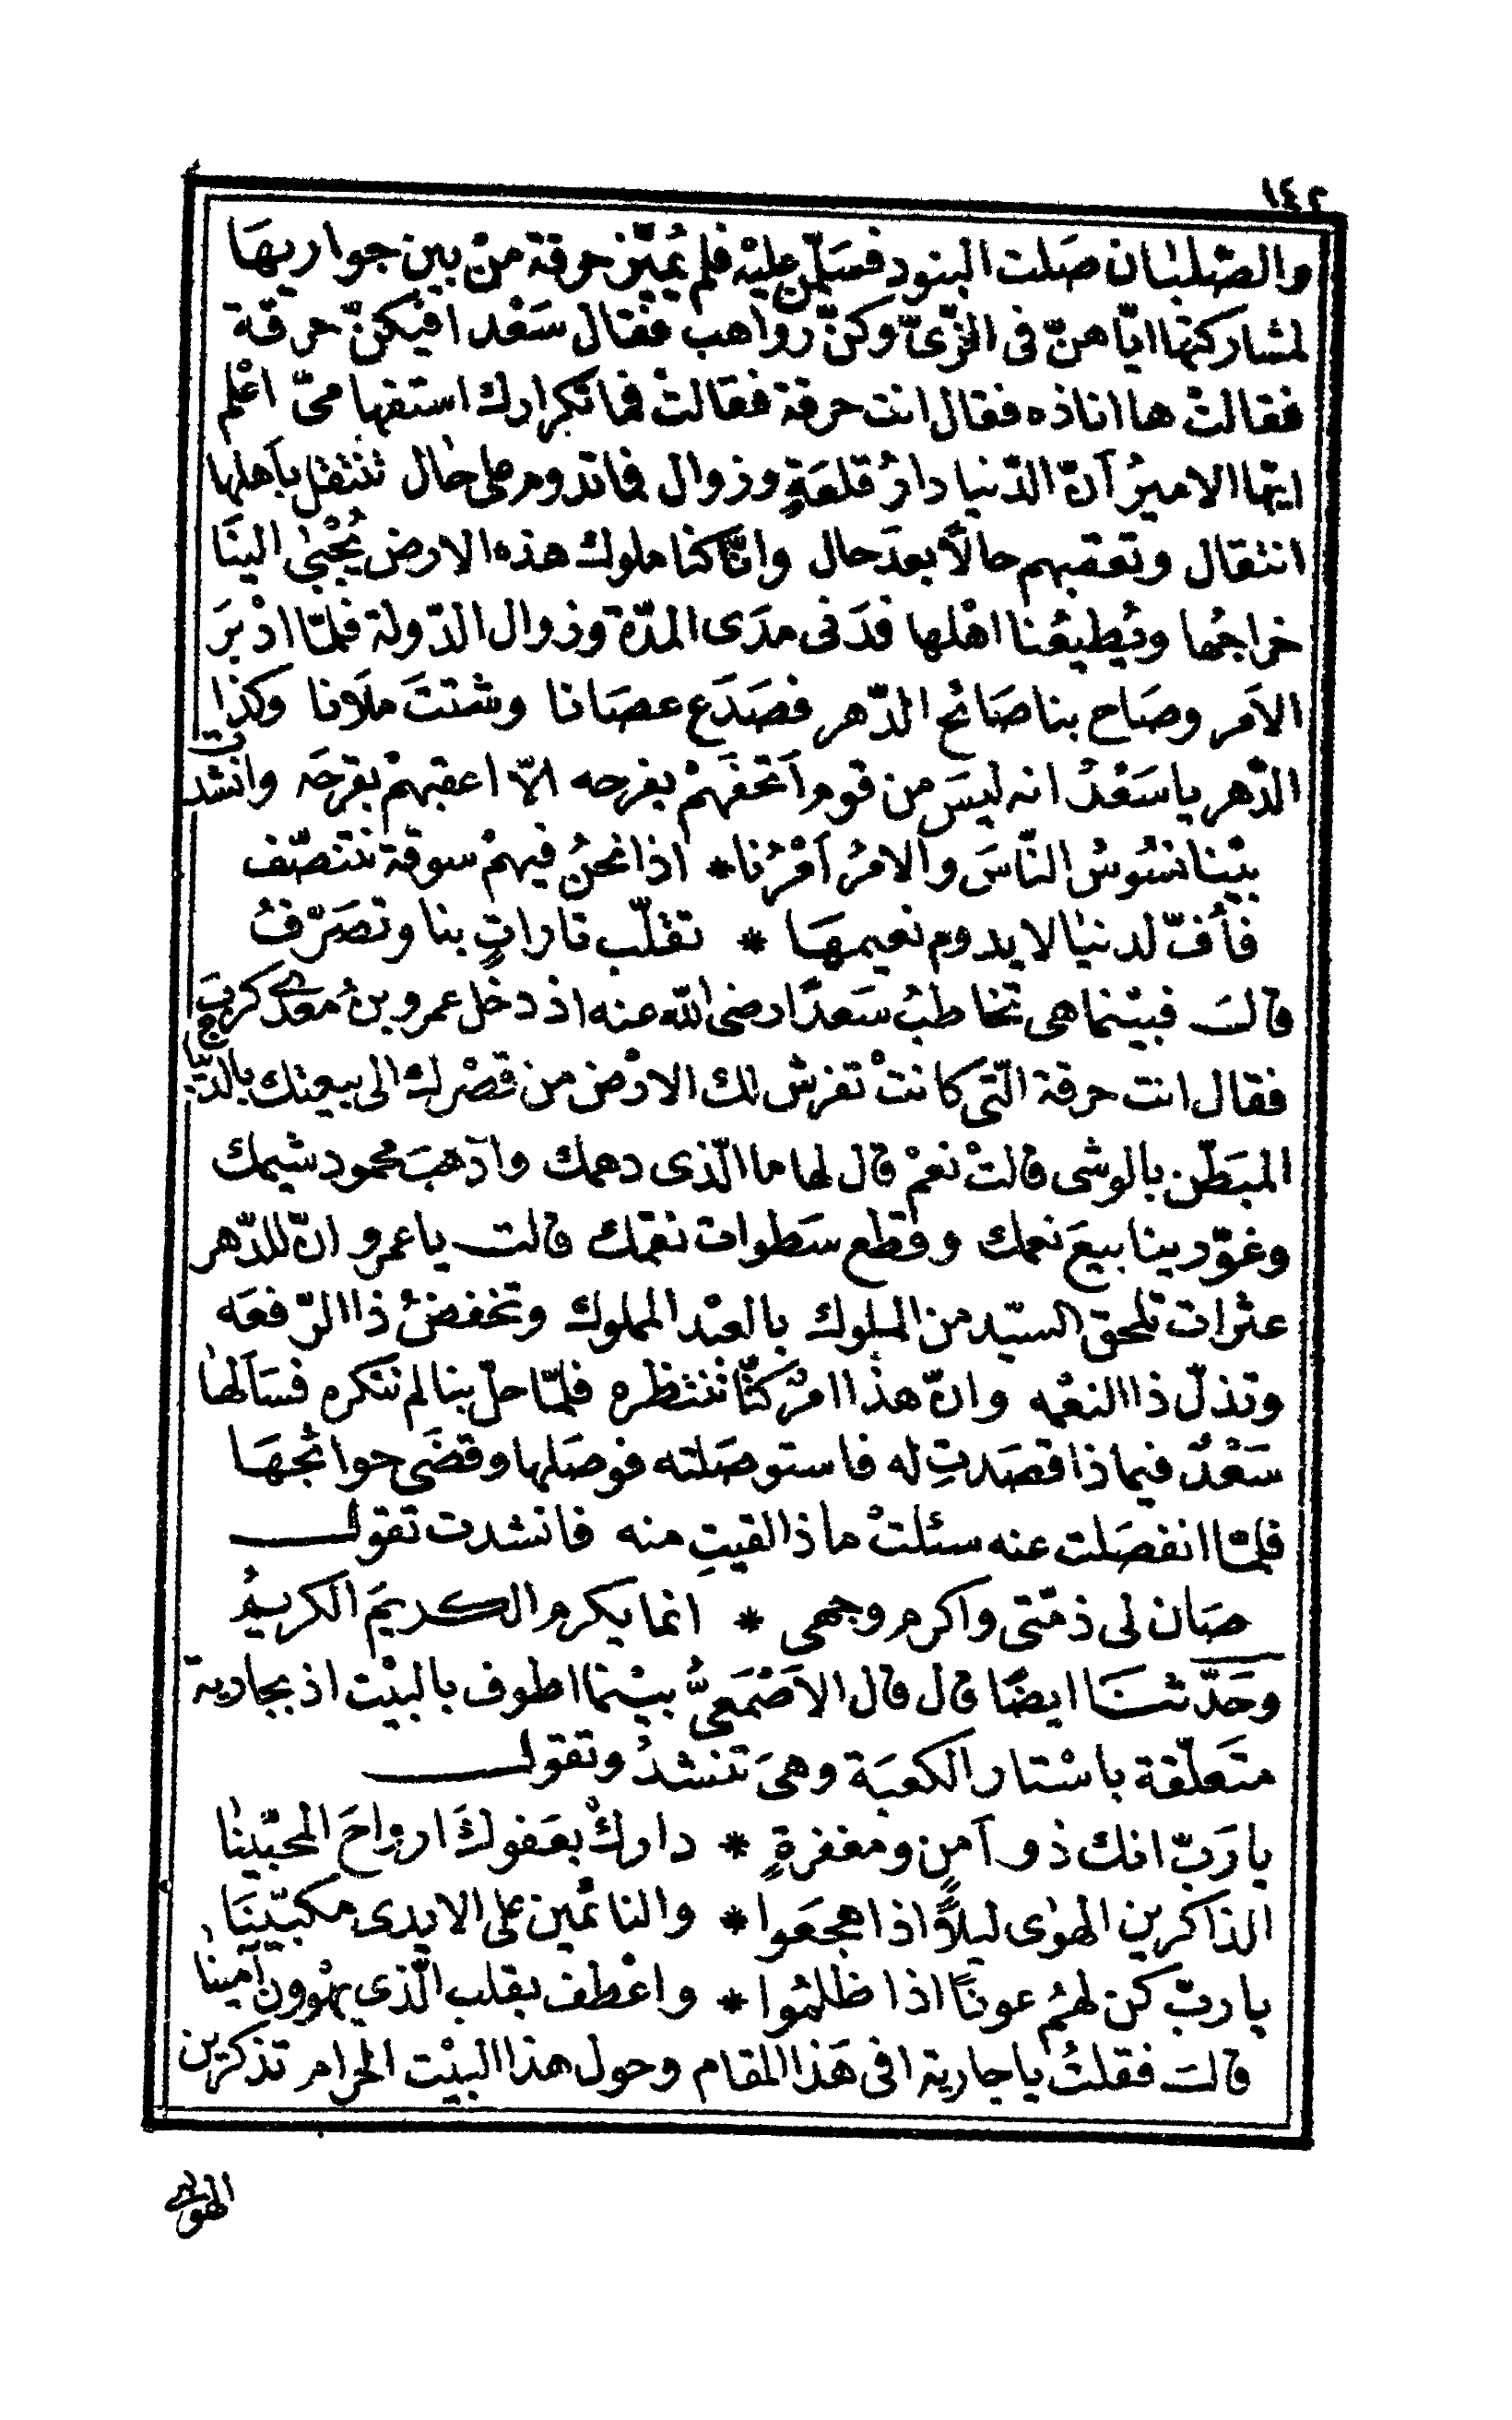 ١٤٢
والصّلبان صَلت البنود فسَلّمن عليْه فلم يُميّز حرقة منْ بين جواريهَا
لمشاركتها ايّاهنّ فى الزّىّ وكنّ رواهب فقال سَعْد افيكنّ حرقة
فقالتْ ها اناذه فقال انت حرقة فقالتْ فما تكرارك استفهامىّ اعْلم
ايّها الاميرُ اَنّ الدّنيا دارُ قلعَةٍ وزوال فما تدوم على حال تنتقل بأهلها
انتقال وتعقبهم حالاً بعدَ حال وانّا كنا ملوك هذه الارض يُجْبىٰ الينَا
خراجُها ويُطيعُنا اهْلها قدَنى مدَى المدّة وزوال الدّولة فلمّا ادْبرَ
الاَمر وصَاح بنا صَائحُ الدّهر فصَدَع عصَانا وشتتَ ملاَنا وكذا
الدّهر يا سَعْدُ انه ليسَ من قوم اَتحفَهمْ بفرحه الاّ اعقبهمْ بقرحَه وانشدت
بيْنا نسُوسُ النّاسَ والامرُ اَمْرُنا * اذا نحنُ فيهمْ سوقة نتنصّف
فأفّ لدنيٰا لا يدوم نعيمهَا * تقلّب تاراتٍ بنا وتصَرّفُ
قالت فبيْنما هى تخاطبُ سَعدًا رضى الله عنه اذ دخل عمرو بنُ معدى كربَ
فقال انت حرقة الّتى كانتْ تفرش لك الارْض من قصْرك الى بيعتك بالدّيباج
المبَطّن بالوشى قالتْ نعمْ قال لها ما الّذى دهمك واَذهبَ محمود شيمك
وغوّر ينابيعَ نعمك وقطع سَطوات نقمك قالت يا عمرو انّ للدّهر
عثرات تلحق السيّد من الملوك بالعبْد المملوك وتخفضُ ذا الرّفعَه
وتذلّ ذا النعْمه وانّ هذا امرٌ كنّا ننتظره فلمّا حلّ بنا لم ننكره فسَألهٰا
سَعْدٌ فيما ذا قصَدتِ له فاستوصَلته فوصَلها وقضَى حوائجهَا
فلمّا انفصَلت عنه سئلتْ ماذا لقيتِ منه فانشدت تقول
صَان لى ذمّتى واَكرم وجهى * انما يكرم الكريمَ الكريمُ
وحَدّثنَا ايضًا قال قال الاَصْمَعىُّ بيْنما اطوف بالبيْت اذ بجارية
متعَلّقة باسْتار الكعبَة وهىَ تنشدُ وتقول
يا رَبّ انك ذو اَمنٍ ومغفرةٍ * داركْ بعَفوكَ ارواحَ المحبّينٰا
الذاكرين الهوٰى ليلاً اذا هجعَوا * والنائمين على الايدى مكبّينَا
يا ربّ كن لهمُ عونًا اذا ظلمُوا * واعْطف بقلب الّذى يهْوون آمينٰا
قالت فقلتُ يا جارية افى هَذا المقام وحول هذا البيْت الحرام تذكرين
الهوى